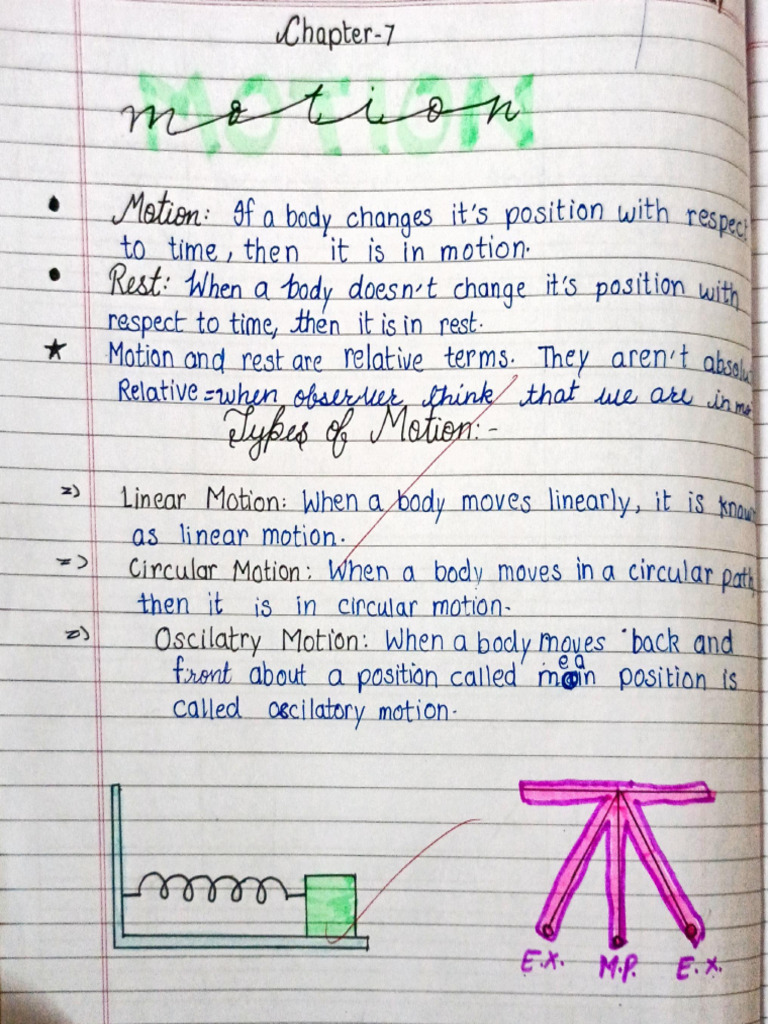 Chapter-7
MOTION
motion
Motion: If a body changes it's position with respect
to time, then it is in motion.
Rest: When a body doesn't change it's position with
respect to time, then it is in rest.
Motion and rest are relative terms. They aren't absolu
Relative = when observer think that we are in mo
Types of Motion:-
Linear Motion: When a body moves linearly, it is know
as linear motion.
Circular Motion: When a body moves in a circular path,
then it is in circular motion.
Oscilatry Motion: When a body moves back and
front about a position called mean position is
called oscilatory motion.
E.X. M.P. E.X.